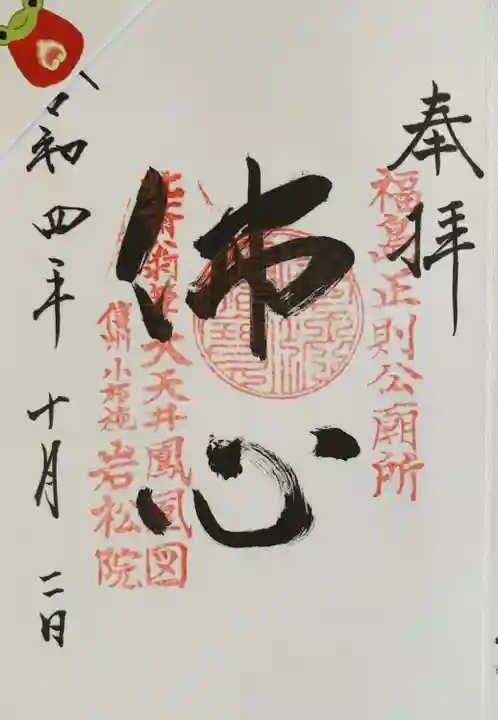 奉拝
福島正則公廟所
佛心
北斎翁筆大天井鳳凰図
信州小布施
岩松院
令和四年十月二日